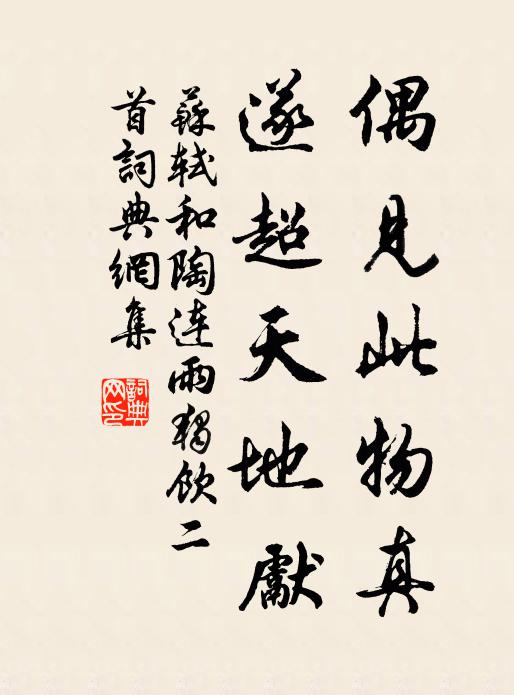 偶見此物真
遂超天地獻
蘇軾和陶連雨獨飲二
首詞典網集
詞典
网印